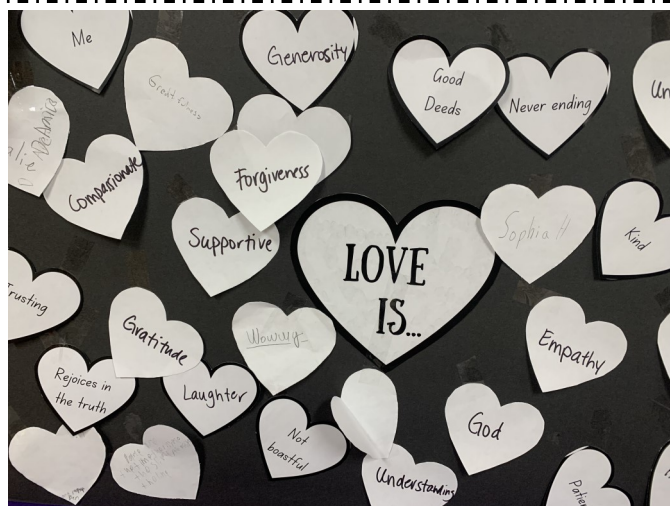 Me
Generosity
Good
Deeds
Never ending
Un
Compassionate
Forgiveness
Supportive
LOVE
IS...
Sophia H
Kind
Trusting
Gratitude
Empathy
Rejoices in
the truth
Laughter
Not
boastful
God
Understanding
Patien